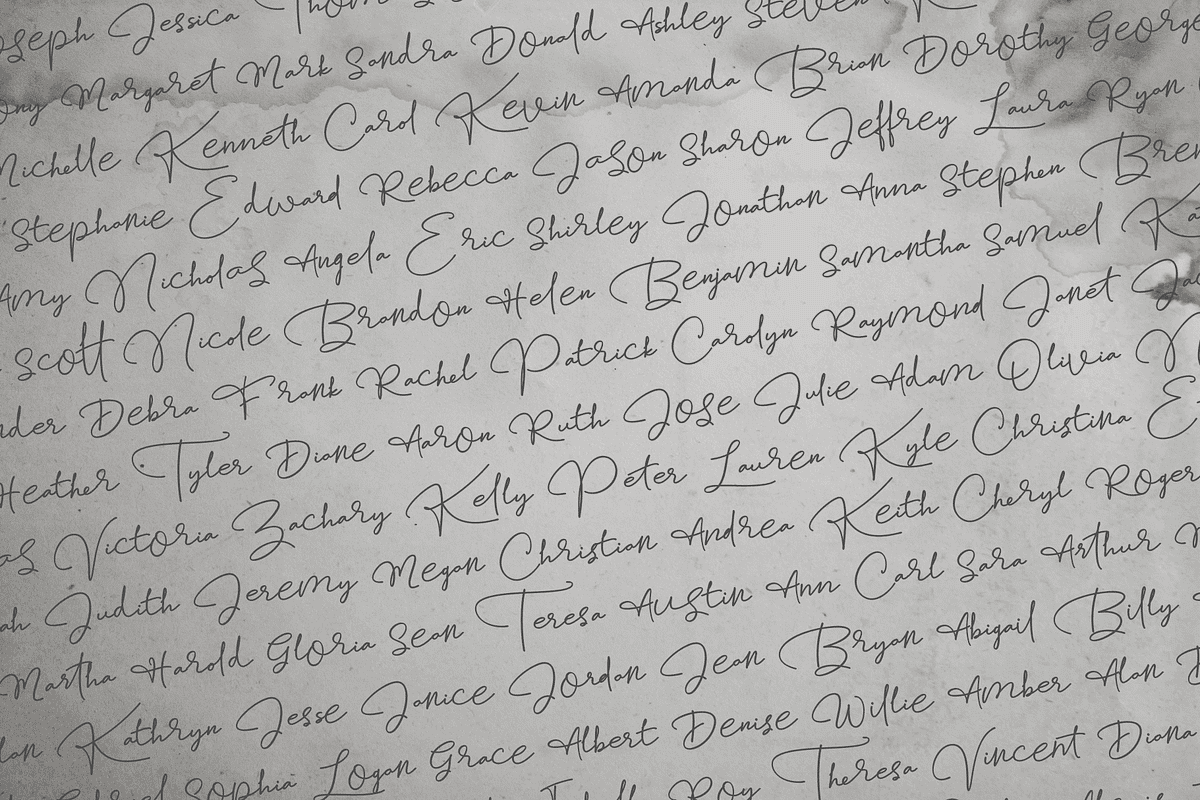 Jessica
Margaret Mark Sandra Donald Ashley Steven
Michelle Kenneth Carol Kevin Amanda Brian Dorothy George
Stephanie Edward Rebecca Jason Sharon Jeffrey Laura Ryan
Amy Nicholas Angela Eric Shirley Jonathan Anna Stephen
Scott Nicole Brandon Helen Benjamin Samantha Samuel
Debra Frank Rachel Patrick Carolyn Raymond Janet
Heather Tyler Diane Aaron Ruth Jose Julie Adam Olivia
Victoria Zachary Kelly Peter Lauren Kyle Christina
Judith Jeremy Megan Christian Andrea Keith Cheryl Roger
Martha Harold Gloria Sean Teresa Austin Ann Carl Sara Arthur
Kathryn Jesse Janice Jordan Jean Bryan Abigail Billy
Sophia Logan Grace Albert Denise Willie Amber Alan
Roy Theresa Vincent Diana